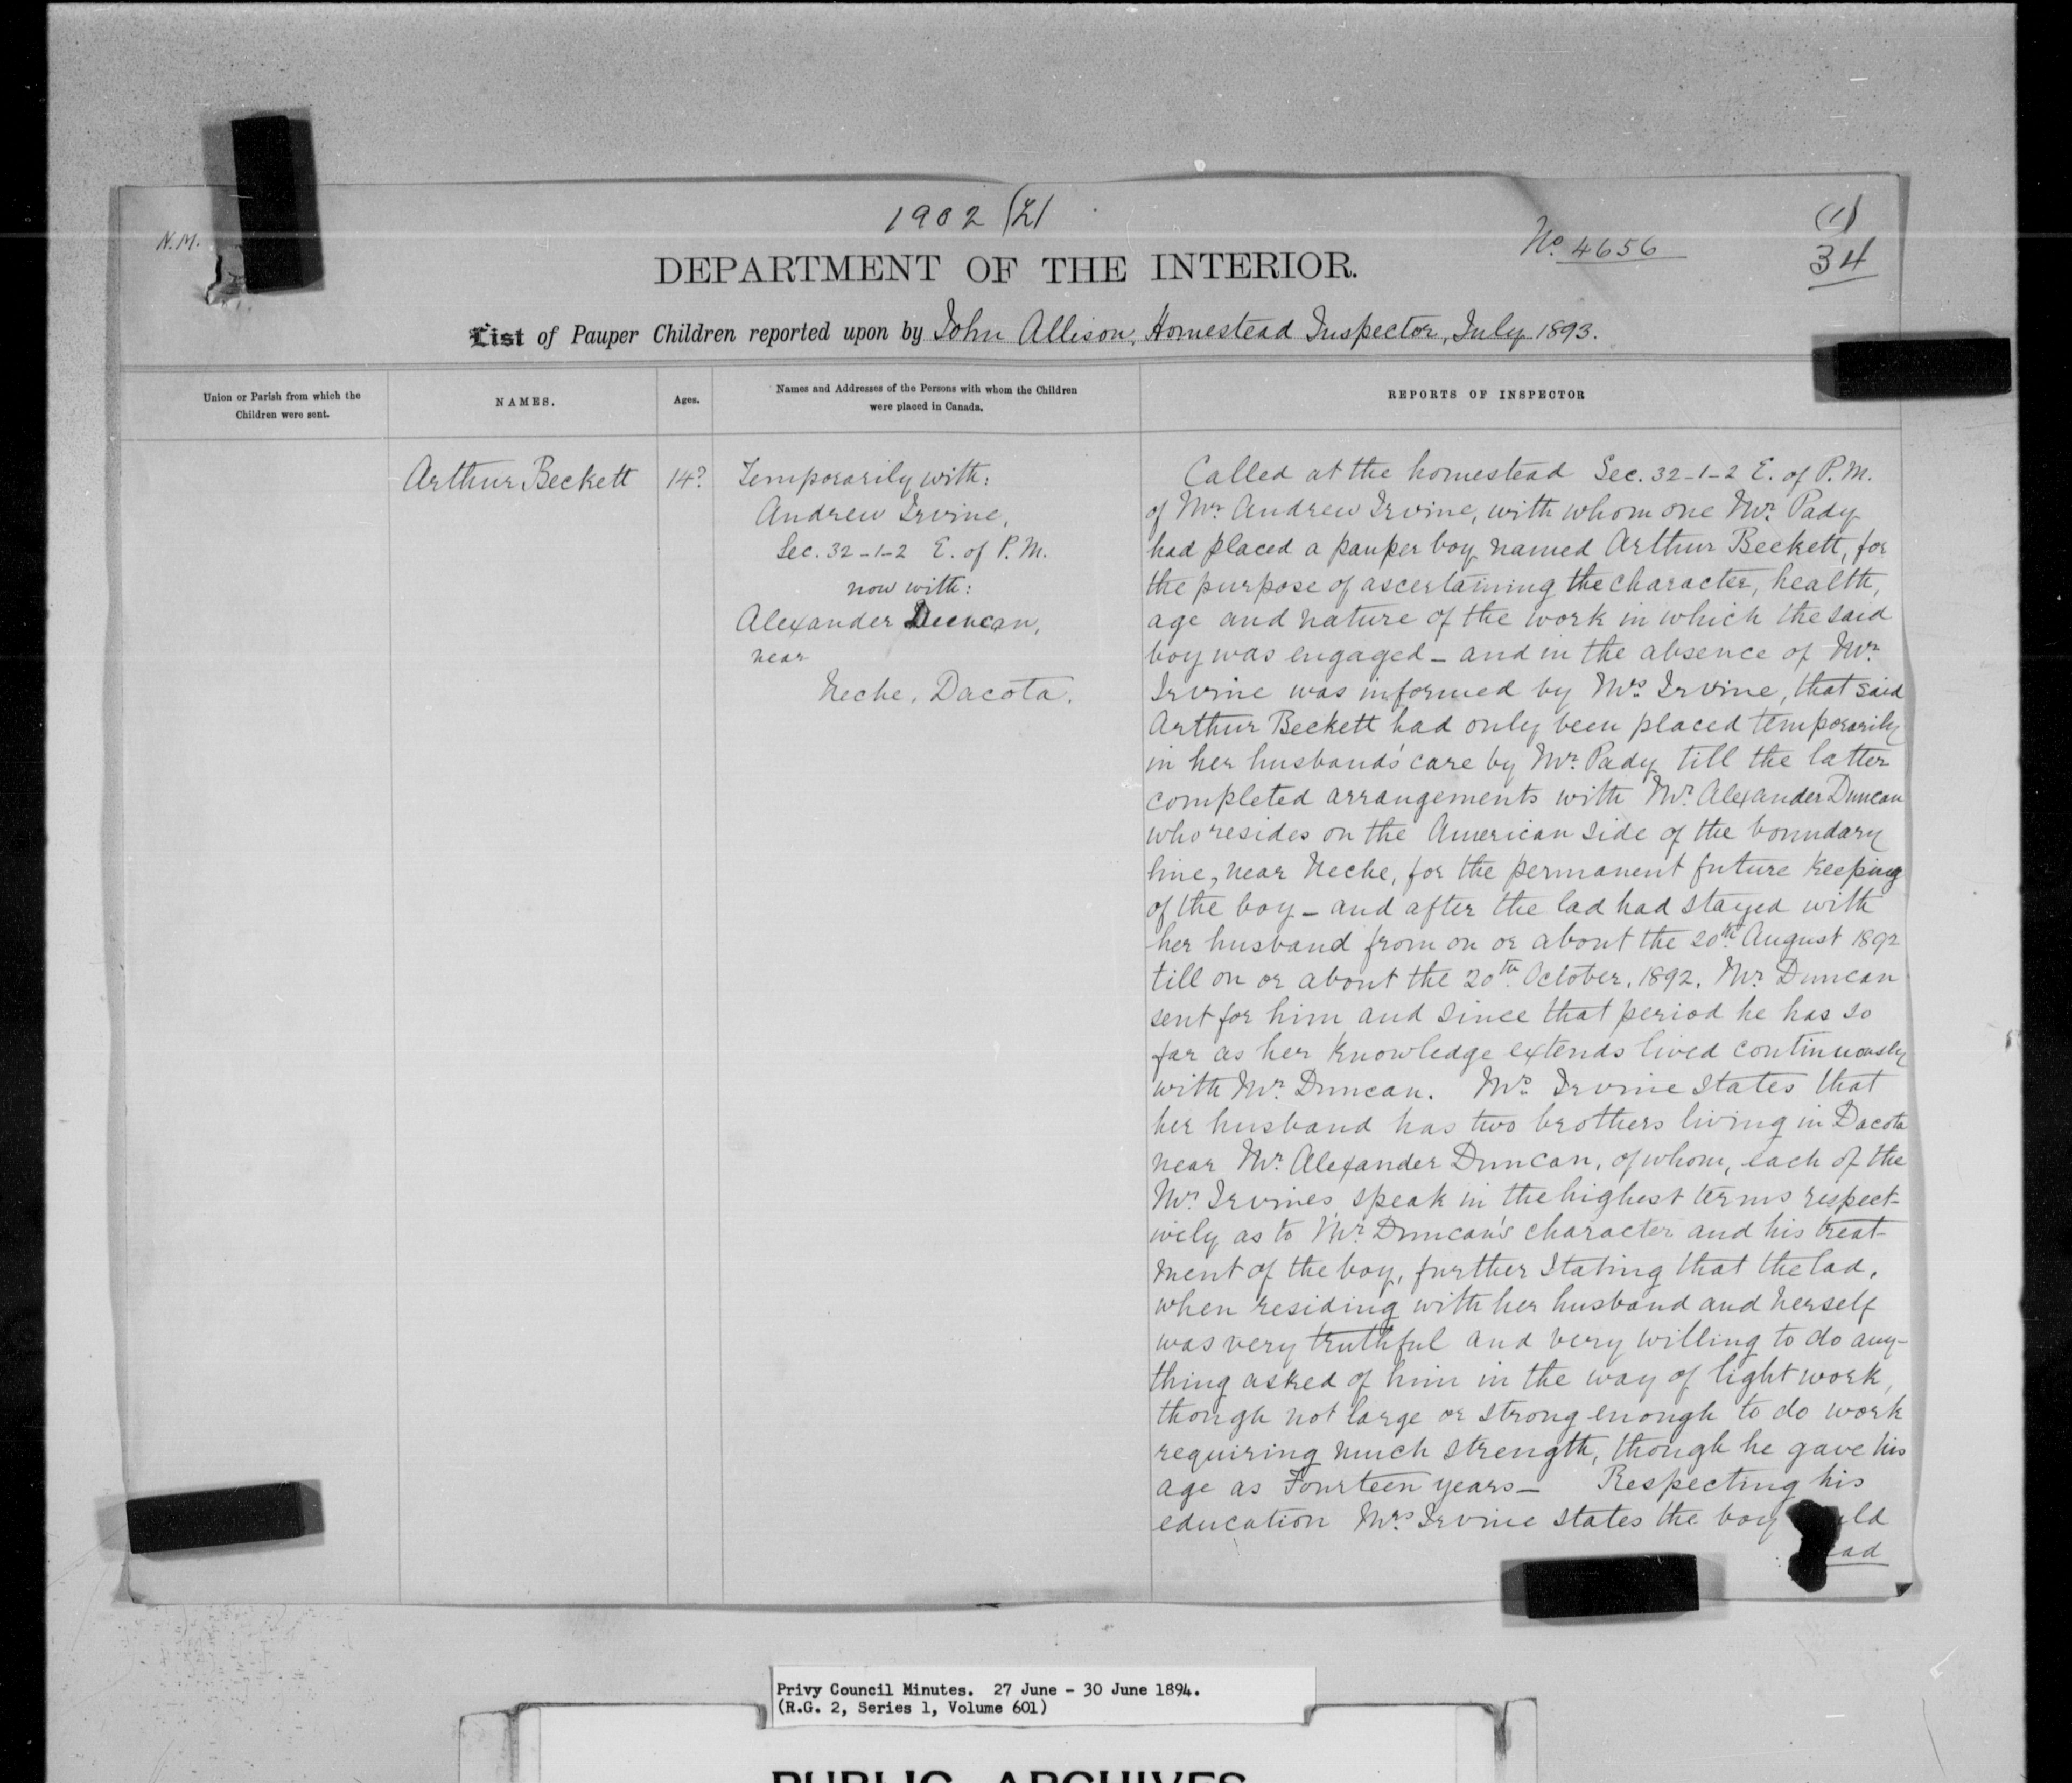 1902 (L)
N.M.
No. 4656
(1)
34
DEPARTMENT OF THE INTERIOR.
List of Pauper Children reported upon by John Allison, Homestead Inspector, July 1893.
Union or Parish from which the
Children were sent.
NAMES.
Ages.
Names and Addresses of the Persons with whom the Children
were placed in Canada.
REPORTS OF INSPECTOR
Arthur Beckett
14?
Temporarily with:
Andrew Irvine,
Sec. 32-1-2 E. of P. M.
now with:
Alexander Duncan,
near
Neche, Dacota.
Called at the homestead Sec. 32-1-2 E. of P. M.
of Mr. Andrew Irvine, with whom one Mr. Pady
had placed a pauper boy named Arthur Beckett, for
the purpose of ascertaining the character, health,
age and nature of the work in which the said
boy was engaged - and in the absence of Mr.
Irvine was informed by Mrs. Irvine, that said
Arthur Beckett had only been placed temporarily
in her husband's care by Mr. Pady till the latter
completed arrangements with Mr. Alexander Duncan
who resides on the American side of the boundary
line, near Neche, for the permanent future keeping
of the boy - and after the lad had stayed with
her husband from on or about the 20th. August 1892
till on or about the 20th. October, 1892. Mr. Duncan
sent for him and since that period he has so
far as her knowledge extends lived continuously
with Mr. Duncan. Mrs. Irvine states that
her husband has two brothers living in Dacota
near Mr. Alexander Duncan, of whom, each of the
Mr. Irvines speak in the highest terms respect-
ively as to Mr. Duncan's character and his treat-
ment of the boy, further stating that the lad,
when residing with her husband and herself
was very truthful and very willing to do any-
thing asked of him in the way of light work,
though not large or strong enough to do work
requiring much strength, though he gave his
age as Fourteen years - Respecting his
education Mrs. Irvine states the boy
Privy Council Minutes. 27 June - 30 June 1894.
(R.G. 2, Series 1, Volume 601)
PUBLIC ARCHIVES